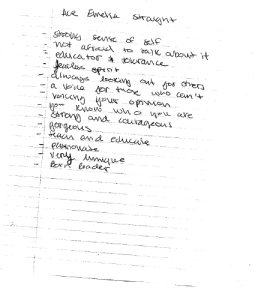 Ace Emelia Straught
- strong sense of self
- not afraid to talk about it
- educator & tolerance
- fearless spirit
- always looking out for others
- a voice for those who can't
- voicing your opinion
- you know who you are
- strong and courageous
- gorgeous
- teach and educate
- passionate
- very unique
- Born leader